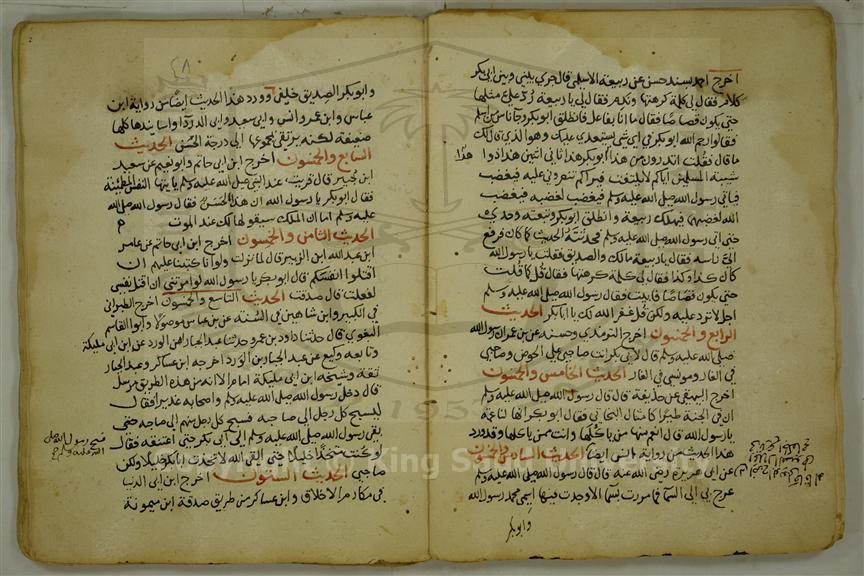 اخرج احمد بسند حسن عن ربيعة الاسلمي قال جرى بيني وبين ابي بكر
كلام فقال لي كلمة كرهتها وندم فقال لي يا ربيعة رد علي مثلها
حتى يكون قصاصا فقلت ما انا بفاعل فانطلق ابو بكر وجا ناس من اسلم
فقالوا رحم الله ابو بكر في اي شي يستعدي عليك وهو الذي قال لك
ما قال فقلت اتدرون من هذا ابو بكر هذا ثاني اثنين هذا ذوا
شيبة المسلمين اياكم لا يلتفت فيراكم تنصروني عليه فيغضب
فياتي رسول الله صلى الله عليه وسلم فيغضب لغضبه فيغضب
الله لغضبهما فيهلك ربيعة وانطلق ابو بكر وتبعته وحدي
حتى اتى رسول الله صلى الله عليه وسلم فحدثه الحديث كما كان فرفع
الي راسه فقال يا ربيعة مالك والصديق فقلت يا رسول الله
كان كذا وكذا فقال لي كلمة كرهتها فقال قل كما قلت
حتى يكون قصاصا فابيت فقال رسول الله صلى الله عليه وسلم
اجل لا ترد عليه ولكن قل غفر الله لك يا ابا بكر الحديث
الرابع والخمسون اخرج الترمذي وحسنه عن بن عمر ان رسول الله
صلى الله عليه وسلم قال لابي بكر انت صاحبي على الحوض وصاحبي
في الغار ومونسي في الغار الحديث الخامس والخمسون
اخرج البيهقي عن حذيفة قال قال رسول الله صلى الله عليه وسلم
ان في الجنة طيرا كامثال البخاتي فقال ابو بكر انها لناعمة
يا رسول الله قال انعم منها من ياكلها وانت ممن ياكلها وقد ورد
هذا الحديث من رواية انس ايضا الحديث السادس والخمسون
عن ابي هريرة رضي الله عنه قال قال رسول الله صلى الله عليه وسلم
عرج بي الى السما فما مررت بسما الا وجدت فيها اسمي محمد رسول الله
وابو بكر
وابو بكر الصديق خلفي وورد هذا الحديث ايضا من رواية ابن
عباس وابن عمر وانس وابي سعيد وابي الدرداء واسانيدها كلها
ضعيفة لكنه يرتقي بمجموعها الى درجة الحسن الحديث
السابع والخمسون اخرج ابن ابي حاتم وابو نعيم عن سعيد
ابن جبير قال قريت عند النبي صلى الله عليه وسلم يا ايتها النفس المطمئنة
فقال ابو بكر يا رسول الله ان هذا لحسن فقال رسول الله صلى الله
عليه وسلم اما ان الملك سيقولها لك عند الموت
الحديث الثامن والخمسون اخرج ابن ابي حاتم عن عامر
ابن عبد الله ابن الزبير قال لما نزلت ولو انا كتبنا عليهم ان
اقتلوا انفسكم قال ابو بكر يا رسول الله لو امرتني ان اقتل نفسي
لفعلت قال صدقت الحديث التاسع والخمسون اخرج الطبراني
في الكبير وابن شاهين في السنة عن بن عباس موصولا وابو القاسم
البغوي قال حدثنا داود بن عمر وحدثنا عبد الجبار ابن الورد عن ابن ابي مليكة
وتابعه وكيع عن عبد الجبار بن الورد اخرجه ابن عساكر وعبد الجبار
ثقة وشيخه ابن ابي مليكة امام الا انه من هذه الطريق مرسل
قال دخل رسول الله صلى الله عليه وسلم واصحابه غديرا فقال
ليسبح كل رجل الى صاحبه فسبح كل رجل منهم الى صاحبه حتى
بقي رسول الله صلى الله عليه وسلم وابي بكر حتى اعتنقه فقال
لو كنت متخذا خليلا حتى القى الله لاتخذت ابا بكر خليلا ولكن
صاحبي الحديث الستون اخرج ابن ابي الدنيا
في مكارم الاخلاق وابن عساكر من طريق صدقة ابن ميمونة